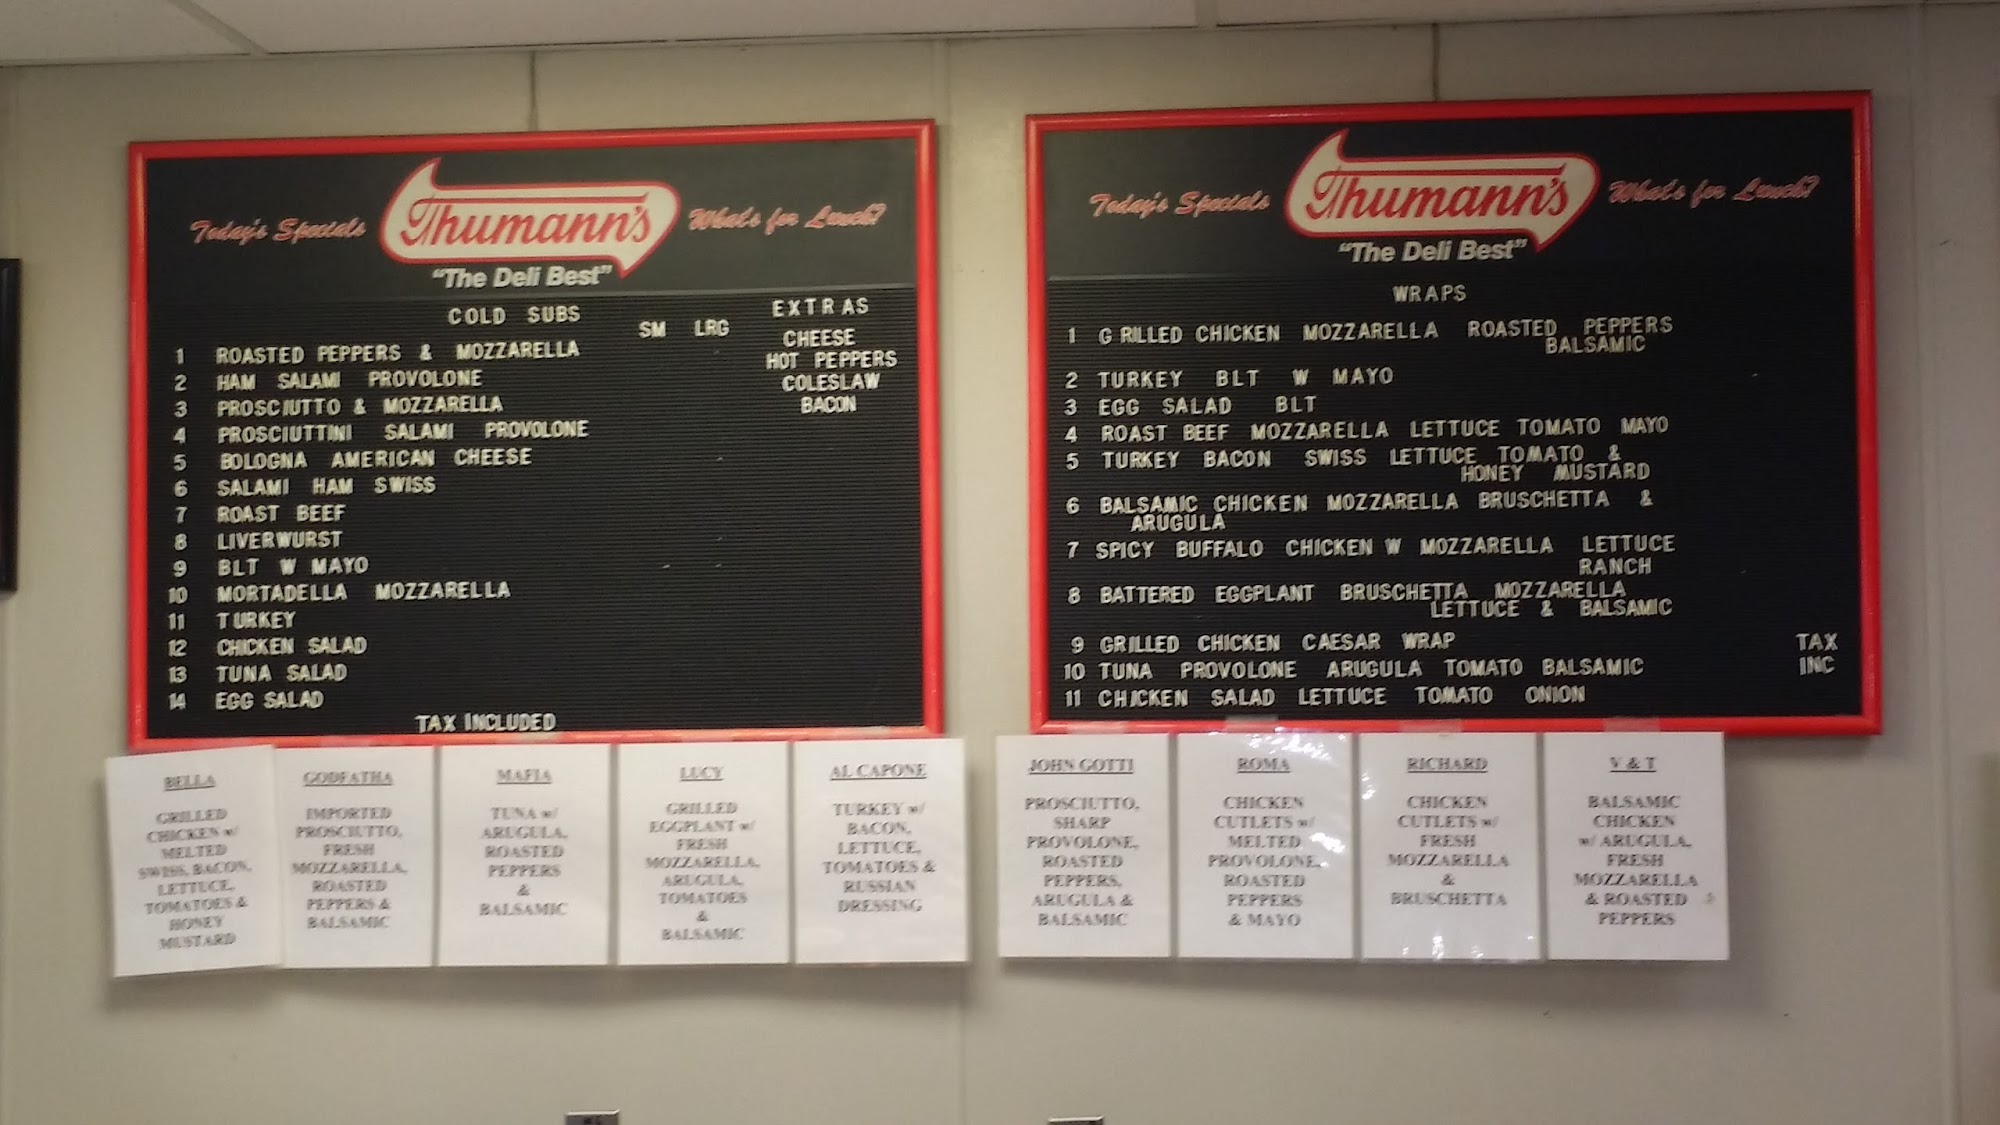 Today's Specials
Thumann's
What's for Lunch?
"The Deli Best"
COLD SUBS
SM LRG
EXTRAS
1 ROASTED PEPPERS & MOZZARELLA
2 HAM SALAMI PROVOLONE
3 PROSCIUTTO & MOZZARELLA
4 PROSCIUTTINI SALAMI PROVOLONE
5 BOLOGNA AMERICAN CHEESE
6 SALAMI HAM SWISS
7 ROAST BEEF
8 LIVERWURST
9 BLT W MAYO
10 MORTADELLA MOZZARELLA
11 TURKEY
12 CHICKEN SALAD
13 TUNA SALAD
14 EGG SALAD
TAX INCLUDED
CHEESE
HOT PEPPERS
COLESLAW
BACON
Today's Specials
Thumann's
What's for Lunch?
"The Deli Best"
WRAPS
1 GRILLED CHICKEN MOZZARELLA ROASTED PEPPERS
BALSAMIC
2 TURKEY BLT W MAYO
3 EGG SALAD BLT
4 ROAST BEEF MOZZARELLA LETTUCE TOMATO MAYO
5 TURKEY BACON SWISS LETTUCE TOMATO &
HONEY MUSTARD
6 BALSAMIC CHICKEN MOZZARELLA BRUSCHETTA &
ARUGULA
7 SPICY BUFFALO CHICKEN W MOZZARELLA LETTUCE
RANCH
8 BATTERED EGGPLANT BRUSCHETTA MOZZARELLA
LETTUCE & BALSAMIC
9 GRILLED CHICKEN CAESAR WRAP
10 TUNA PROVOLONE ARUGULA TOMATO BALSAMIC
11 CHICKEN SALAD LETTUCE TOMATO ONION
TAX
INC
BELLA
GRILLED
CHICKEN w/
MELTED
SWISS, BACON,
LETTUCE,
TOMATOES &
HONEY
MUSTARD
GODFATHA
IMPORTED
PROSCIUTTO,
FRESH
MOZZARELLA,
ROASTED
PEPPERS &
BALSAMIC
MAFIA
TUNA w/
ARUGULA,
ROASTED
PEPPERS
&
BALSAMIC
LUCY
GRILLED
EGGPLANT w/
FRESH
MOZZARELLA,
ARUGULA,
TOMATOES
&
BALSAMIC
AL CAPONE
TURKEY w/
BACON,
LETTUCE,
TOMATOES &
RUSSIAN
DRESSING
JOHN GOTTI
PROSCIUTTO,
SHARP
PROVOLONE,
ROASTED
PEPPERS,
ARUGULA &
BALSAMIC
ROMA
CHICKEN
CUTLETS w/
MELTED
PROVOLONE,
ROASTED
PEPPERS
& MAYO
RICHARD
CHICKEN
CUTLETS w/
FRESH
MOZZARELLA
&
BRUSCHETTA
V & T
BALSAMIC
CHICKEN
w/ ARUGULA,
FRESH
MOZZARELLA
& ROASTED
PEPPERS